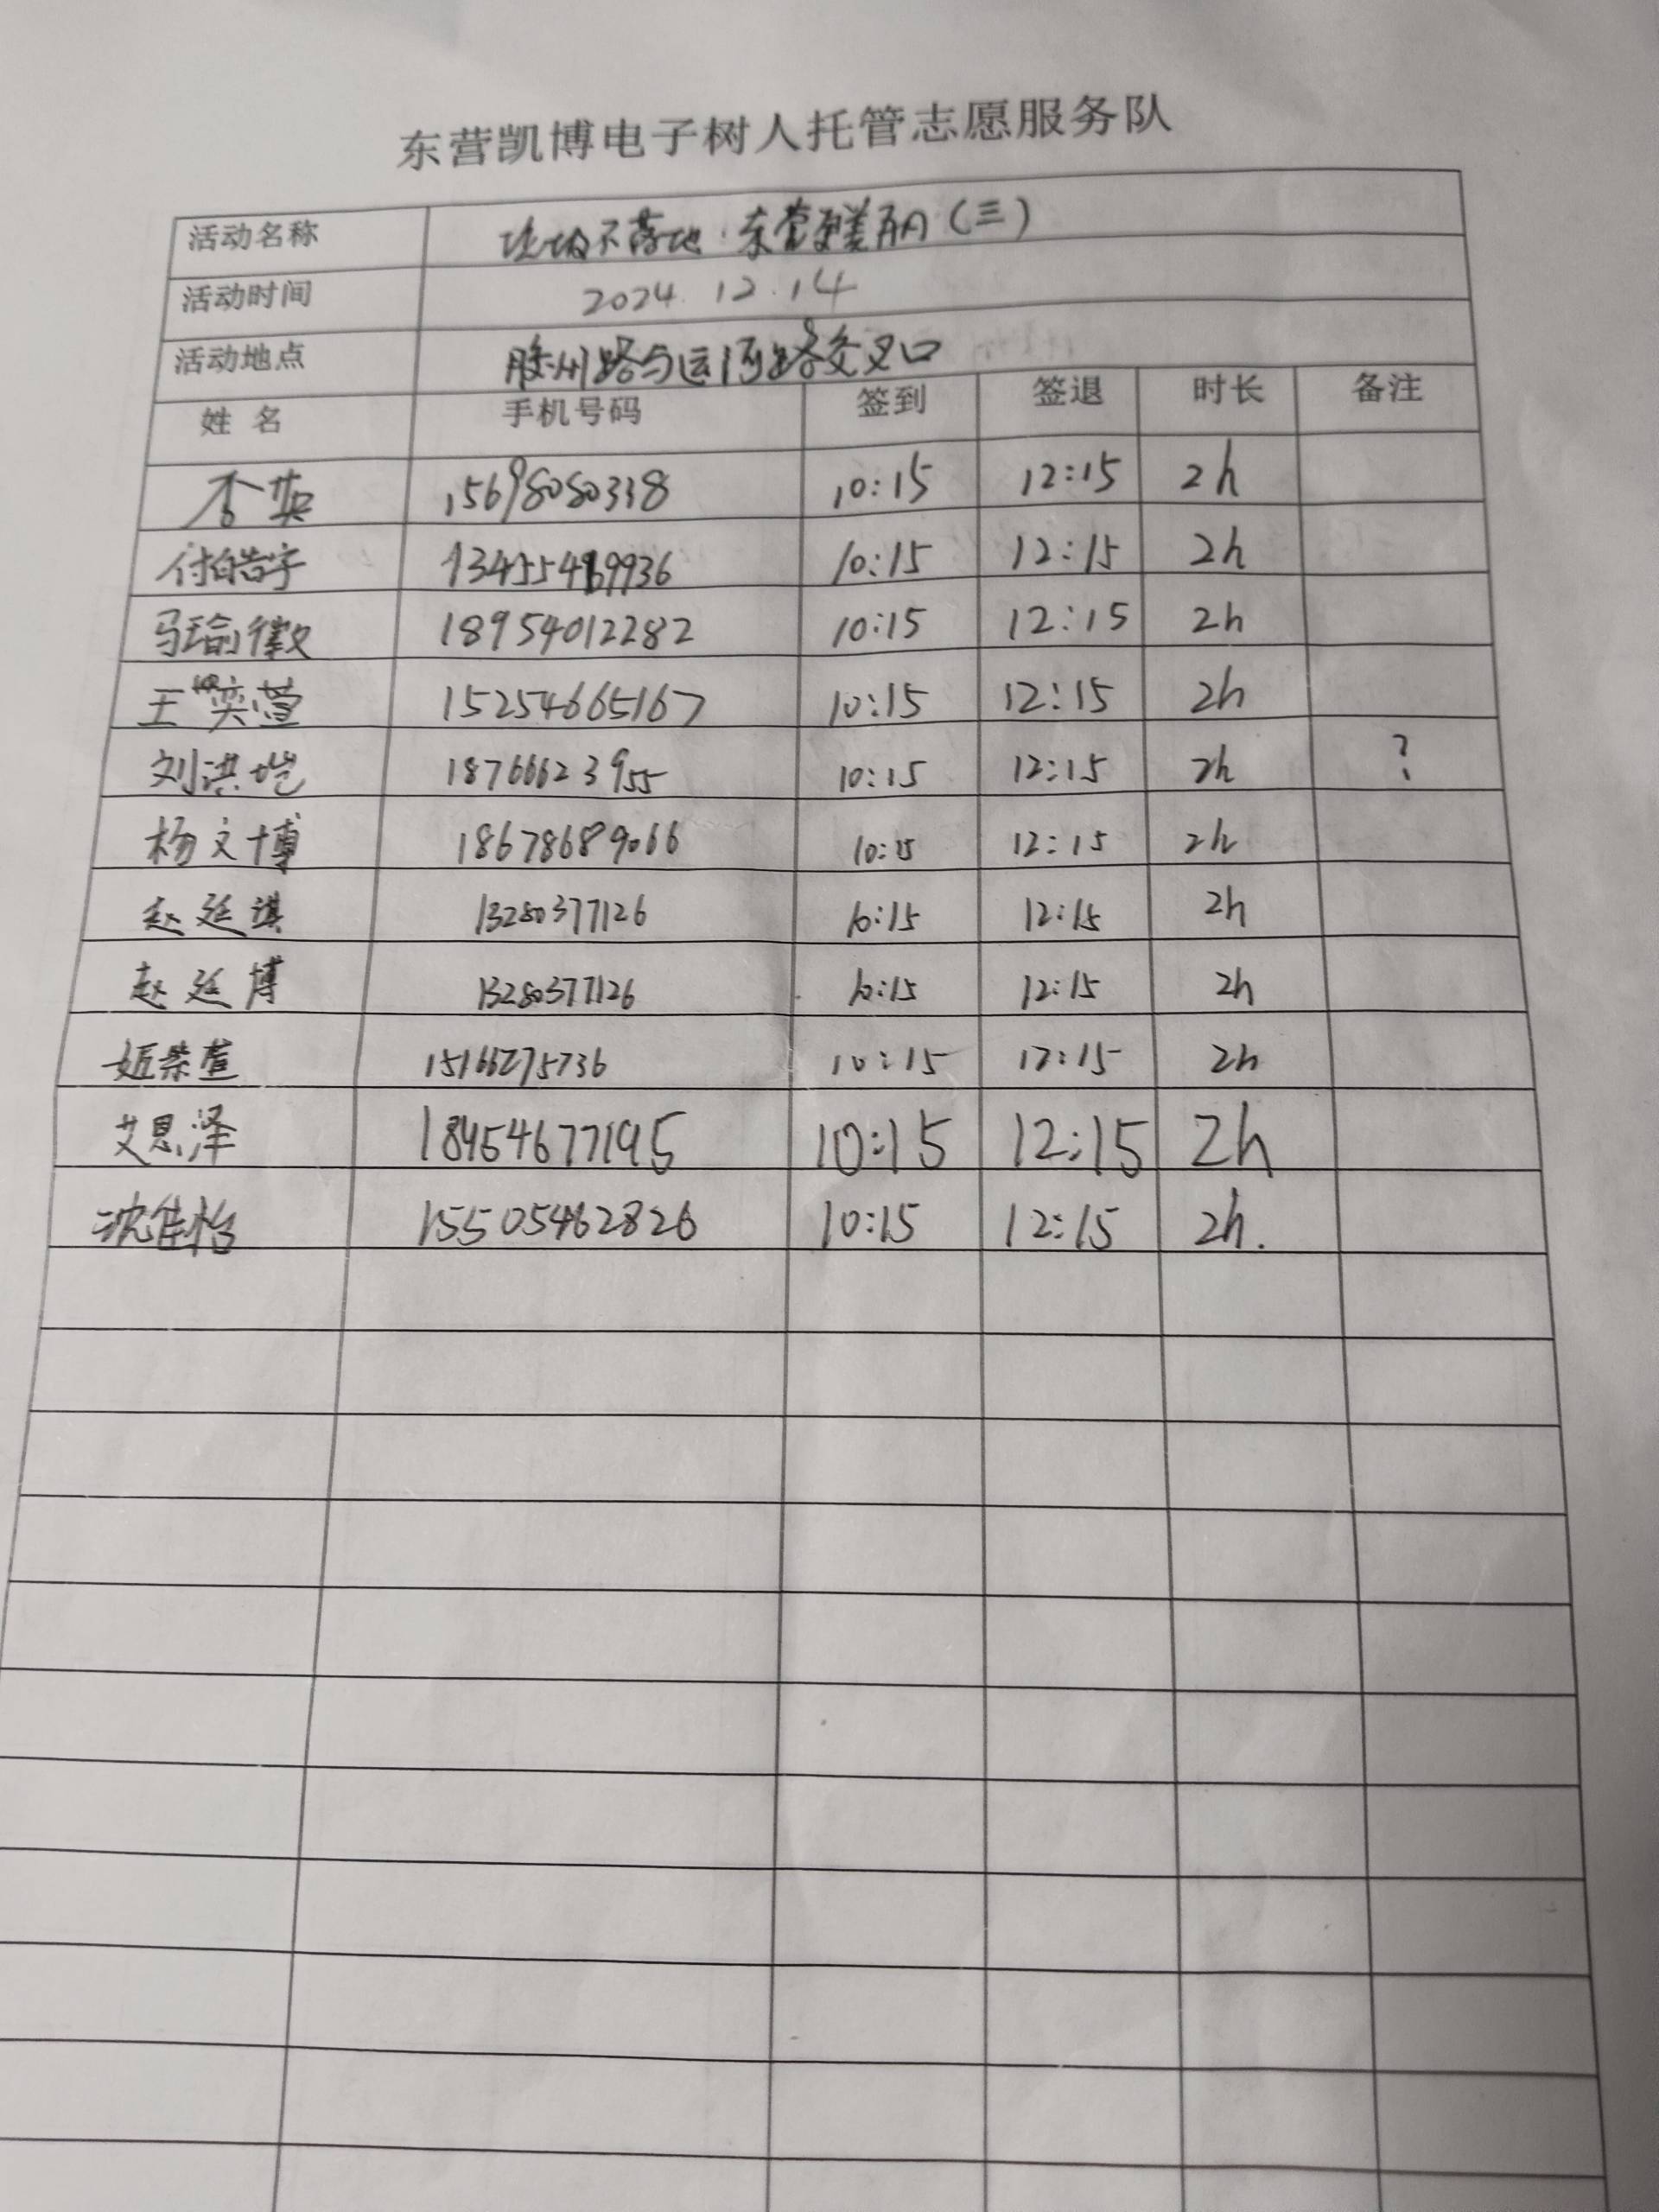 东营凯博电子树人托管志愿服务队
活动名称 垃圾不落地·东营更美丽(三)
活动时间 2024.12.14
活动地点 胶州路与运河路交叉口
姓 名 手机号码 签到 签退 时长 备注
15698080338 10:15 12:15 2h
付皓宇 10:15 12:15 2h
马瑜徽 18954012282 10:15 12:15 2h
王奕萱 15254665167 10:15 12:15 2h
刘洪垲 18766623955 10:15 12:15 2h ?
杨文博 18678689066 10:15 12:15 2h
赵延琪 13280377126 10:15 12:15 2h
赵延博 13280377126 10:15 12:15 2h
姬荣萱 15166275736 10:15 12:15 2h
艾思泽 18454677195 10:15 12:15 2h
沈佳怡 15505462826 10:15 12:15 2h.